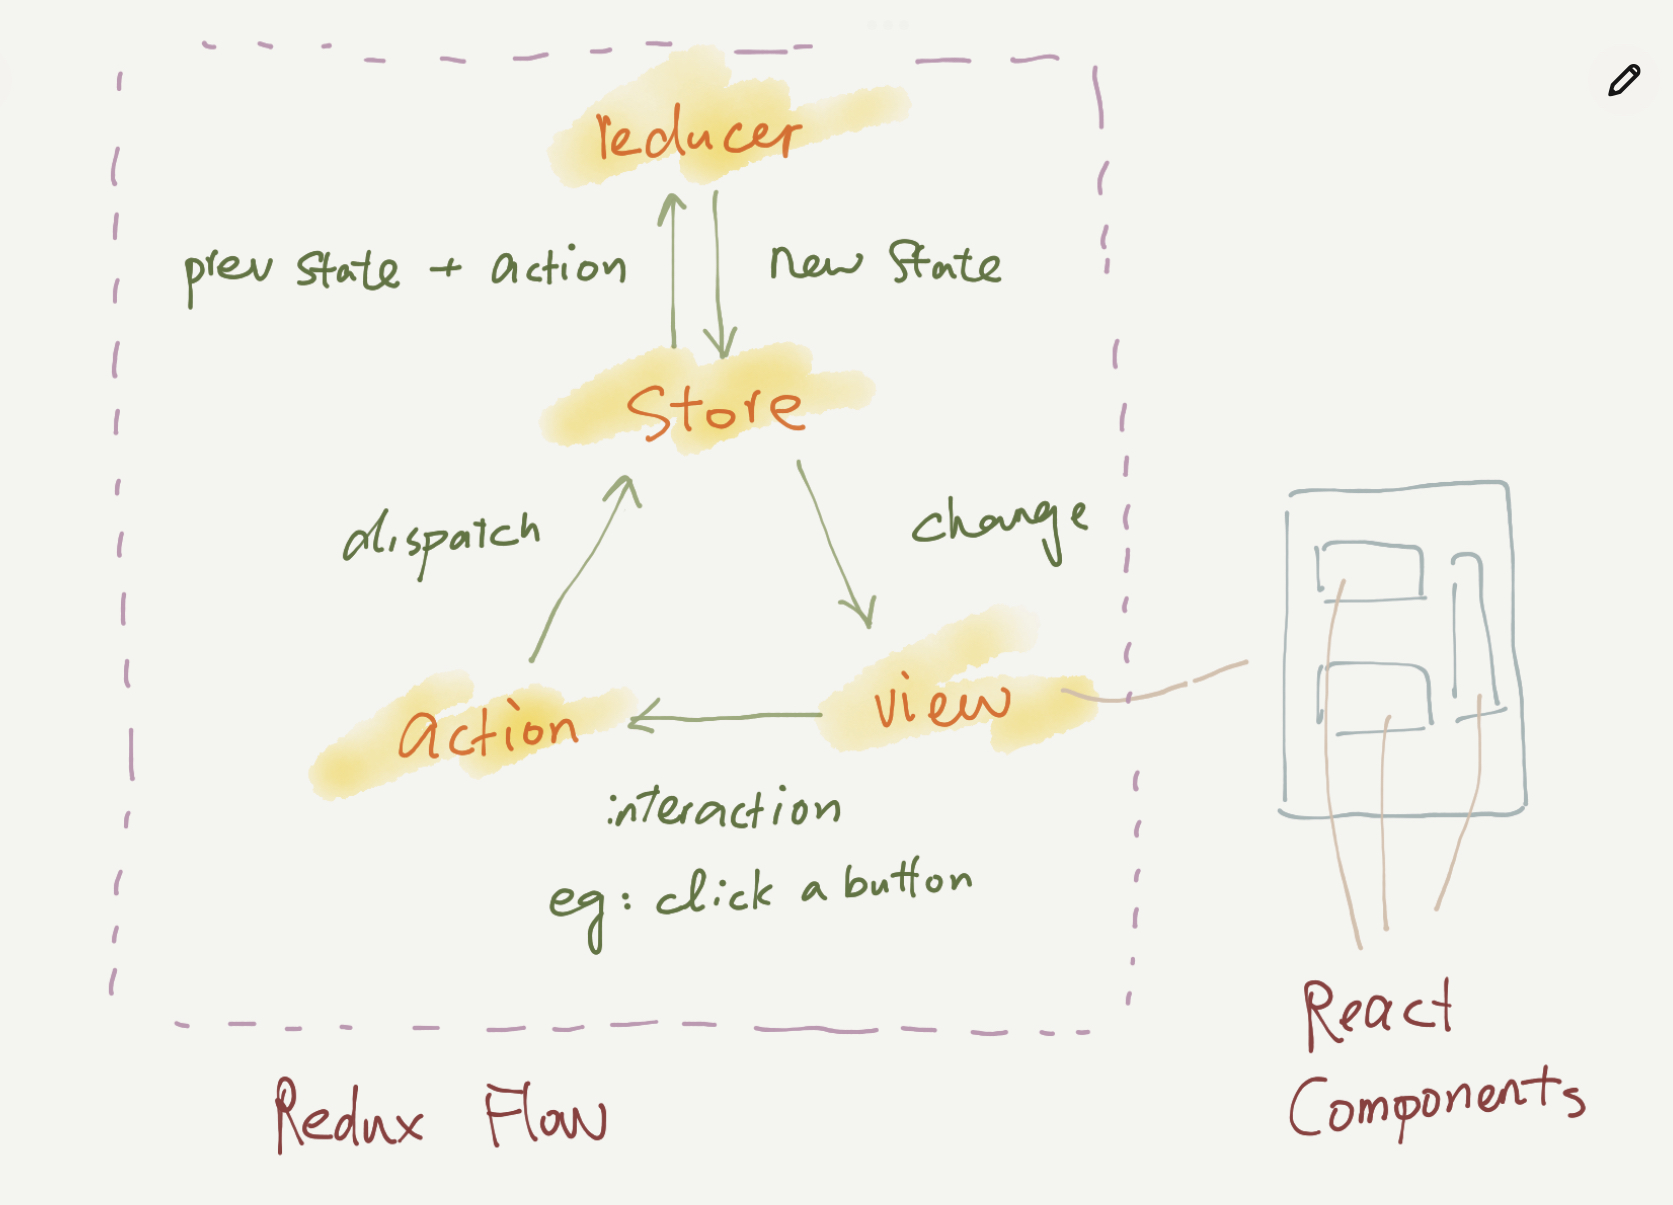 reducer
prev state + action
new State
Store
dispatch
change
action
view
interaction
eg: click a button
React
Components
Redux Flow